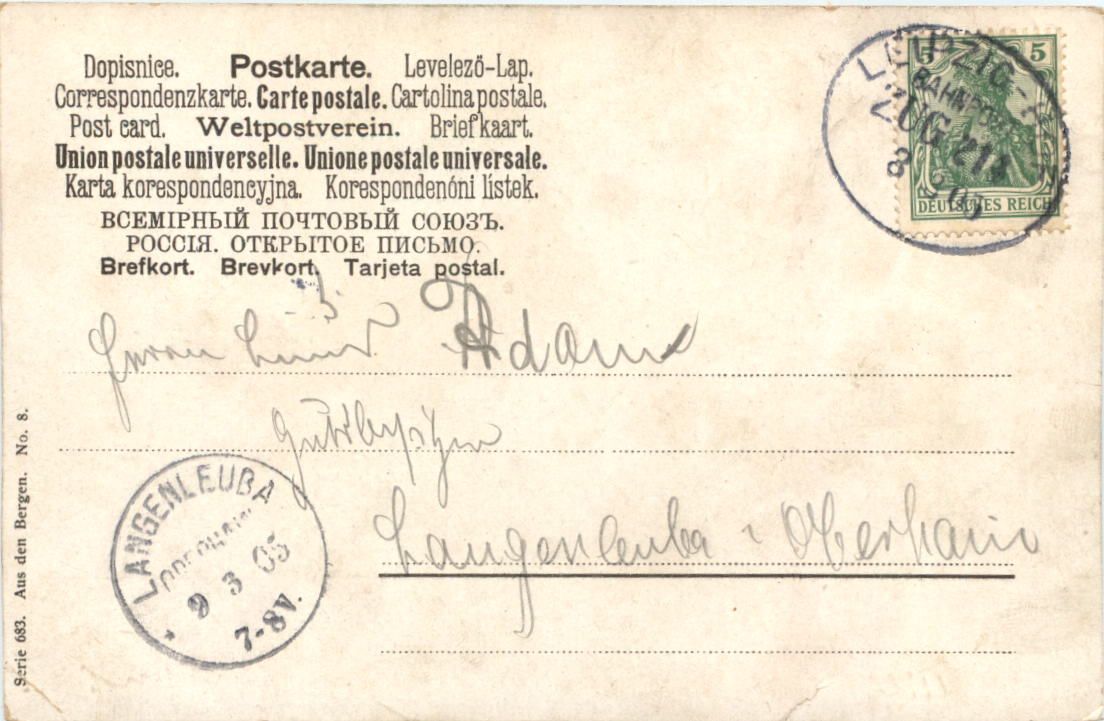 Dopisnice. Postkarte. Levelező-Lap.
Correspondenzkarte. Carte postale. Cartolina postale.
Post card. Weltpostverein. Briefkaart.
Union postale universelle. Unione postale universale.
Karta korespondencyjna. Korespondenóni lístek.
ВСЕМІРНЫЙ ПОЧТОВЫЙ СОЮЗЪ.
РОССІЯ. ОТКРЫТОЕ ПИСЬМО.
Brefkort. Brevkort. Tarjeta postal.
5 5
DEUTSCHES REICH
LEIPZIG
BAHNPOST
ZUG 211
8 3 05
Herrn Adam
Gutsbesitzer
Langenleuba Oberhain
LANGENLEUBA
OBERHAIN
9 3 05
7-8V.
Serie 683. Aus den Bergen. No. 8.